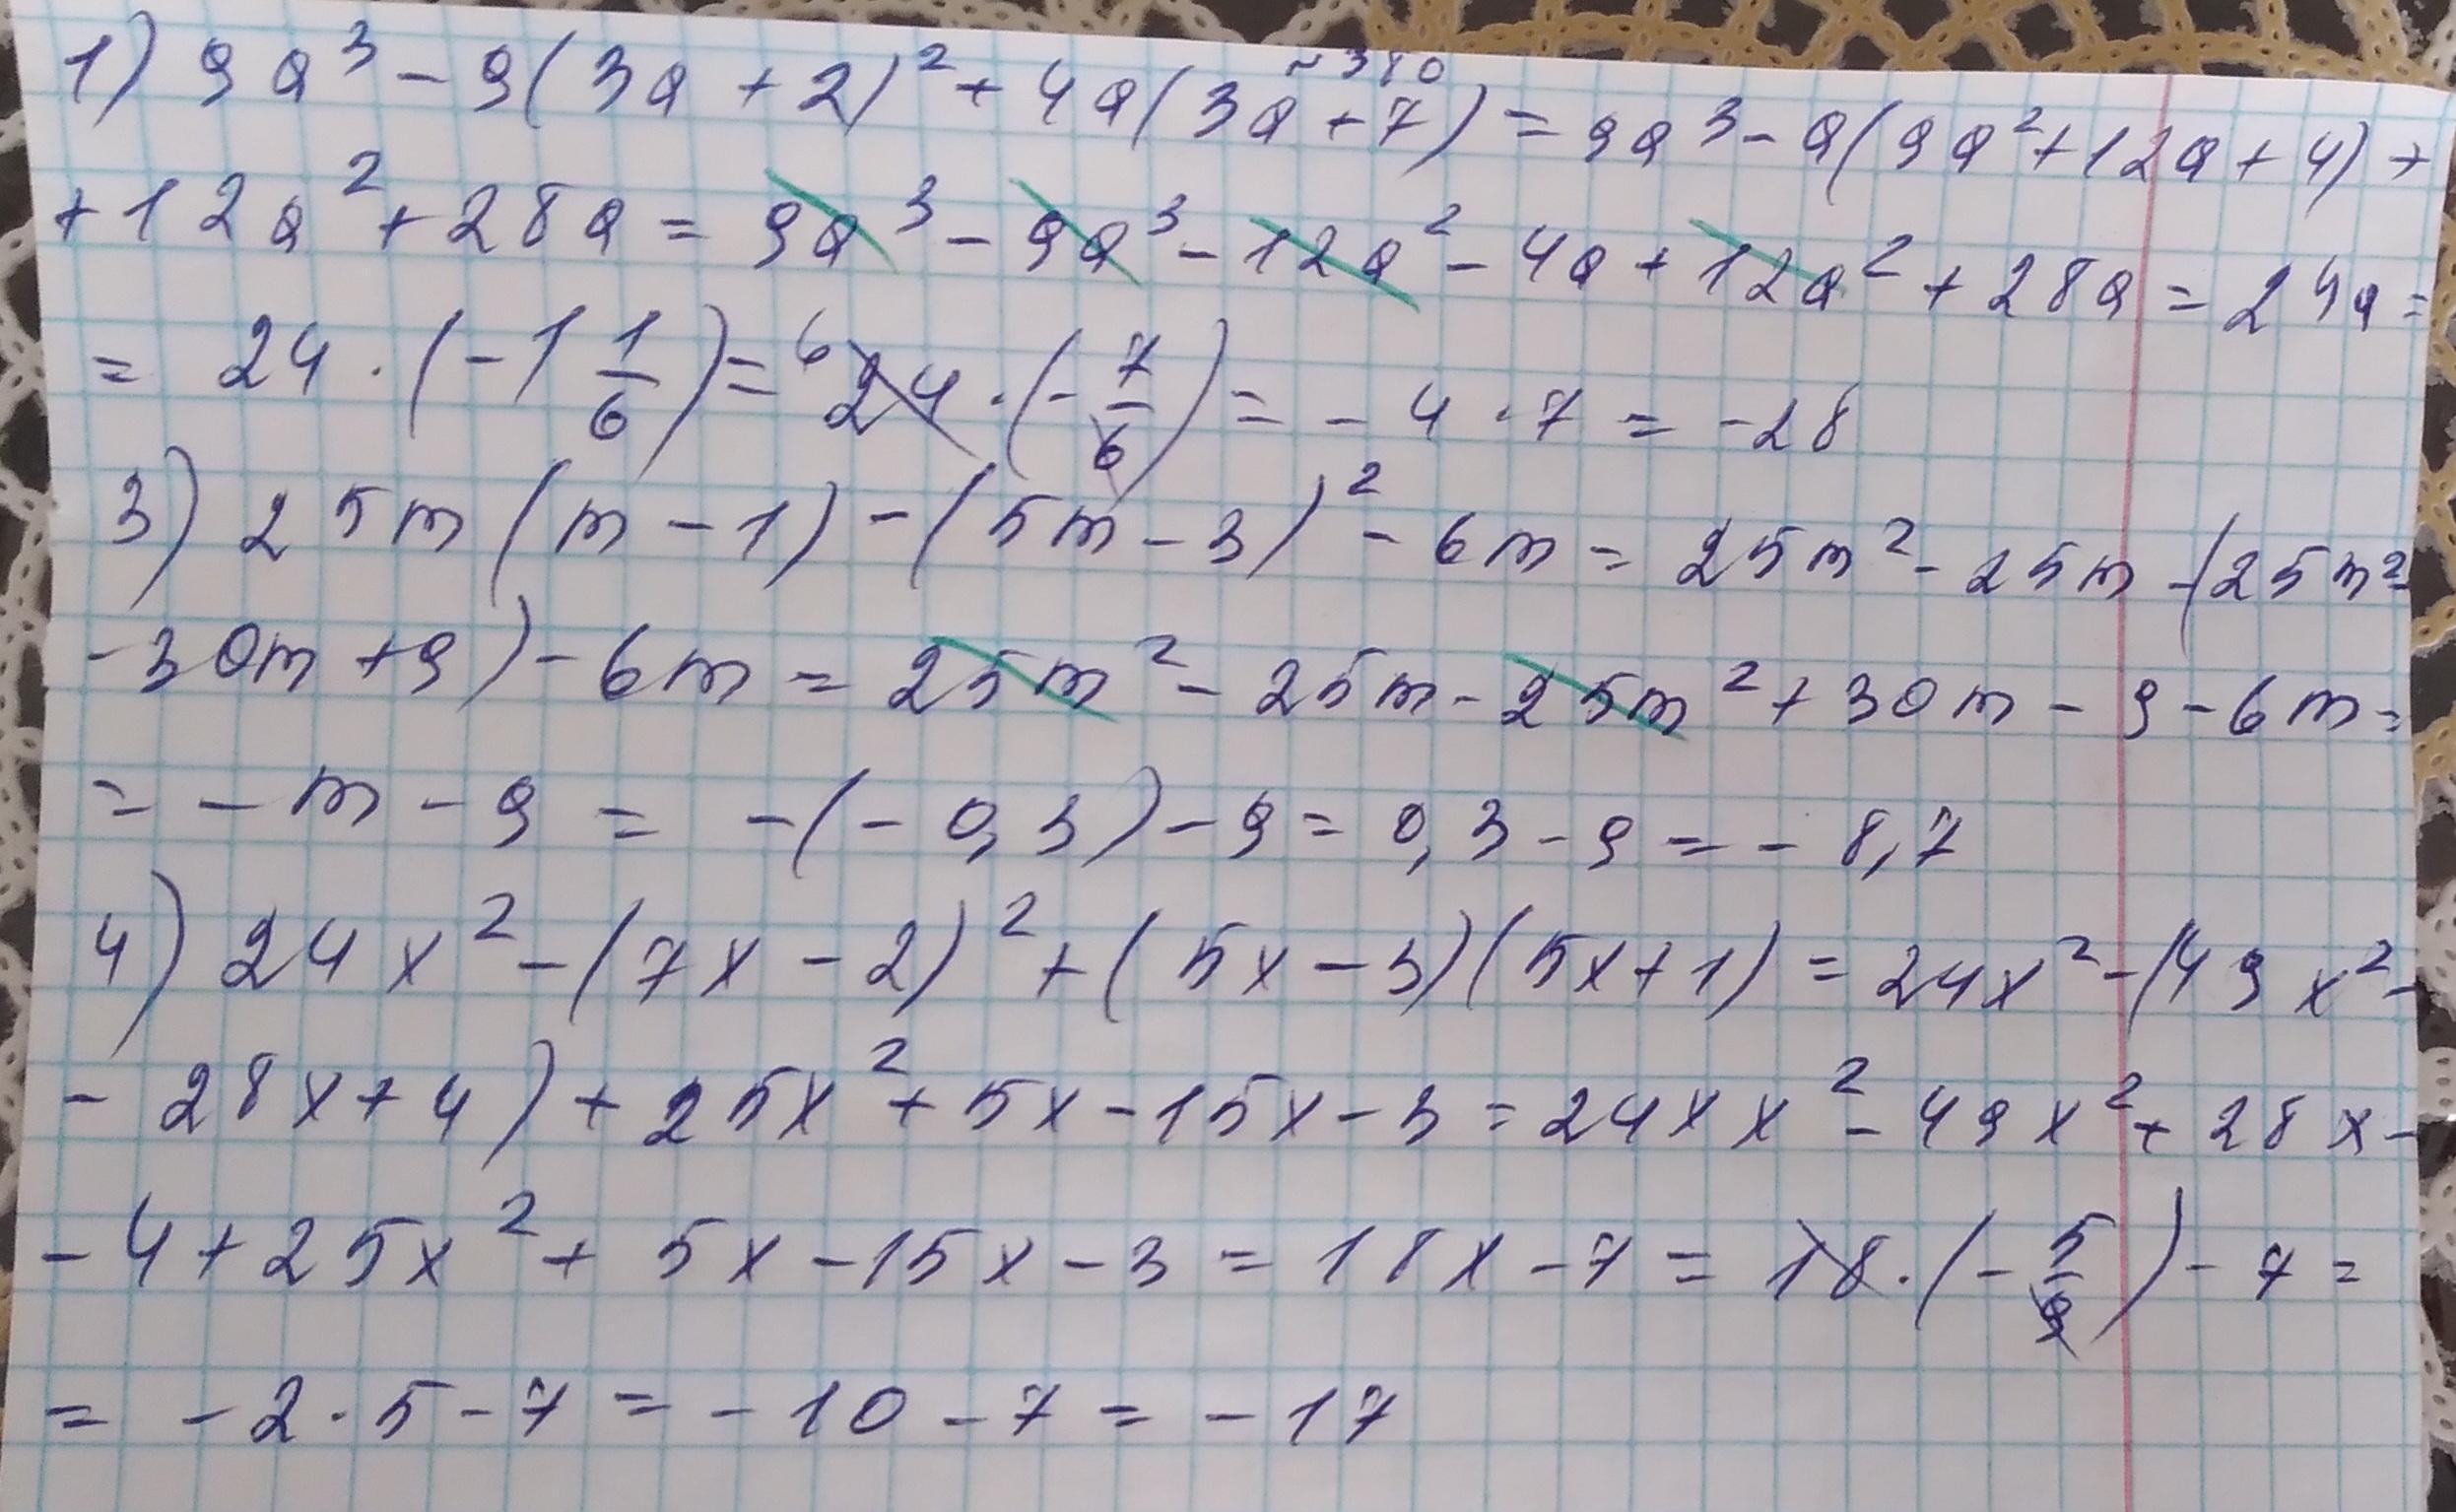 №380
1) 9a³ - 9(3a + 2)² + 4a(3a + 7) = 9a³ - a(9a² + 12a + 4) +
+ 12a² + 28a = 9a³ - 9a³ - 12a² - 4a + 12a² + 28a = 24a =
= 24 · (-1 1/6) = ⁶24 · (- 7/6) = - 4 · 7 = -28
3) 25m (m - 1) - (5m - 3)² - 6m = 25m² - 25m - (25m² -
- 30m + 9) - 6m = 25m² - 25m - 25m² + 30m - 9 - 6m =
= - m - 9 = - (- 0,3) - 9 = 0,3 - 9 = - 8,7
4) 24x² - (7x - 2)² + (5x - 3)(5x + 1) = 24x² - (49x² -
- 28x + 4) + 25x² + 5x - 15x - 3 = 24xx² - 49x² + 28x -
- 4 + 25x² + 5x - 15x - 3 = 18x - 7 = 18 · (- 5/9) - 7 =
= - 2 · 5 - 7 = - 10 - 7 = - 17